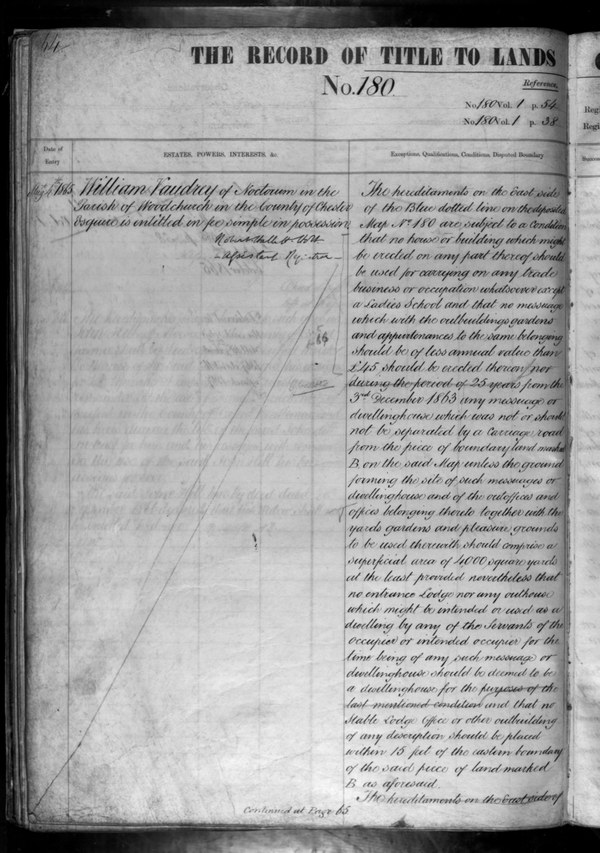 64
THE RECORD OF TITLE TO LANDS
No. 180
Reference.
No. 180 Vol. 1 p. 54
No. 180 Vol. 1 p. 38
Date of
Entry
ESTATES, POWERS, INTERESTS, &c.
Exceptions, Qualifications, Conditions, Disputed Boundary
1865
William Vaudrey of Noctorum in the
Parish of Woodchurch in the County of Chester
Esquire is entitled in fee simple in possession
Robert Hallett Holt
Assistant Registrar
The hereditaments on the East side
of the Blue dotted line on the deposited
Map No. 180 are subject to a Condition
that no house or building which might
be erected on any part thereof should
be used for carrying on any trade
business or occupation whatsoever except
a Ladies School and that no messuage
which with the outbuildings gardens
and appurtenances to the same belonging
should be of less annual value than
£45 should be erected thereon nor
during the period of 25 years from the
3rd December 1863 any messuage or
dwellinghouse which was not or should
not be separated by a carriage road
from the piece of boundary land marked
B. on the said Map unless the ground
forming the site of such messuages or
dwellinghouse and of the outoffices and
offices belonging thereto together with the
yards gardens and pleasure grounds
to be used therewith should comprise a
superficial area of 4000 square yards
at the least provided nevertheless that
no entrance Lodge nor any outhouse
which might be intended or used as a
dwelling by any of the Servants of the
occupier or intended occupier for the
time being of any such messuage or
dwellinghouse should be deemed to be
a dwellinghouse for the purposes of the
last mentioned condition and that no
Stable Lodge Office or other outbuilding
of any description should be placed
within 15 feet of the eastern boundary
of the said piece of land marked
B as aforesaid.
The hereditaments on the East side of
Continued at Page 65